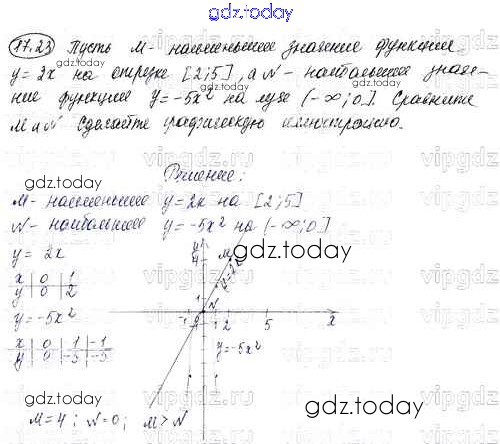 gdz.today
17.23 Пусть M - наименьшее значение функции
y = 2x на отрезке [2;5], а N - наибольшее значе-
ние функции y = -5x² на луче (-∞;0]. Сравните
M и N. Сделайте графическую иллюстрацию.
Решение:
M - наименьшее y = 2x на [2;5]
N - наибольшее y = -5x² на (-∞;0]
y = 2x
x 0 1
y 0 2
y = -5x²
x 0 1 -1
y 0 -5 -5
y
4
M
y=2x
1
N
-1 0 1 2 5 x
y=-5x²
M=4; N=0; M>N
gdz.today
gdz.today
gdz.today
gdz.today
gdz.today
gdz.today
vipgdz